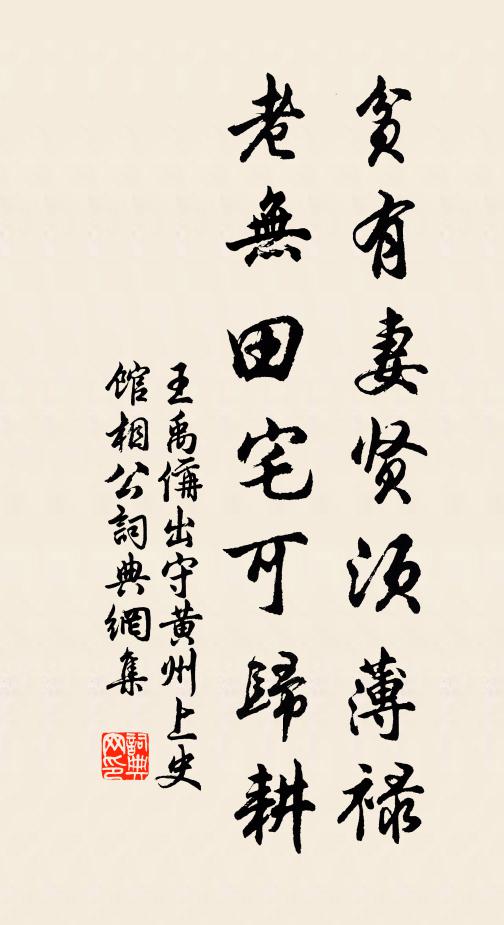 贫有妻贤须薄禄
老無田宅可歸耕
王禹偁出守黄州上史
館相公詞典網集
詞典
网印